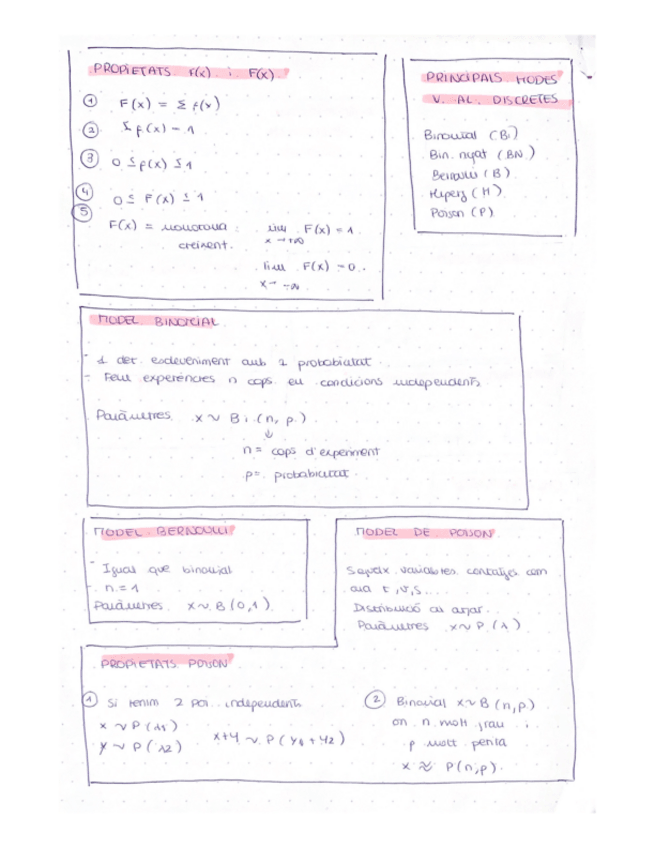 PROPIETATS f(x) i F(x)
① F(x) = Σ f(x)
② Σ f(x) = 1
③ 0 ≤ f(x) ≤ 1
④ 0 ≤ F(x) ≤ 1
⑤ F(x) = monotona creixent.
lim F(x) = 1
x → +∞
lim F(x) = 0
x → -∞
PRINCIPALS MODES
V. AL. DISCRETES
Binomial (Bi)
Bin. nyat (BN)
Bernoulli (B)
Hiperg (H)
Poison (P)
MODEL BINOMIAL
- 1 det. esdeveniment amb 2 probabilitat
- Feut experències n cops en condicions independents
Paràmetres x ~ Bi (n, p)
↓
n = cops d'experiment
p = probabilitat
MODEL BERNOULLI
- Igual que binomial
- n = 1
Paràmetres x ~ B (0,1)
MODEL DE POISON
Segueix variables
Distribució a l'atzar
Paràmetres x ~ P (λ)
PROPIETATS POISON
① Si tenim 2 poi. independents
x ~ P (λ1)
y ~ P (λ2)
x+y ~ P (
② Binomial x ~ B (n,p)
on n molt grau i
p molt petita
x ≈ P(n;p).